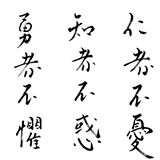 仁者不憂
知者不惑
勇者不懼